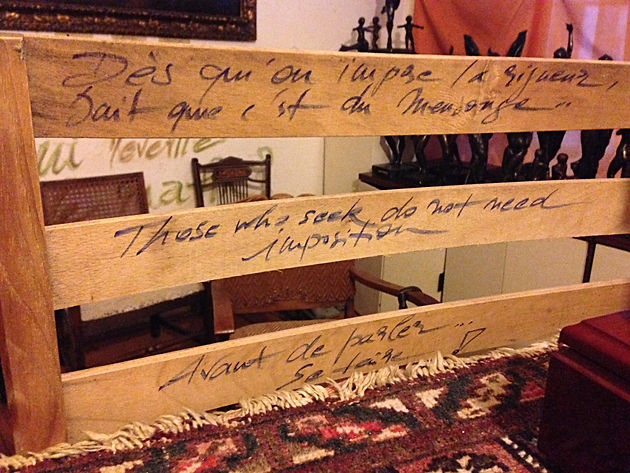 Dès qu'on impose la rigueur,
Sait que c'est du Mensonge ..
Those who seek do not need
imposition
Avant de parler ...
Se taire !